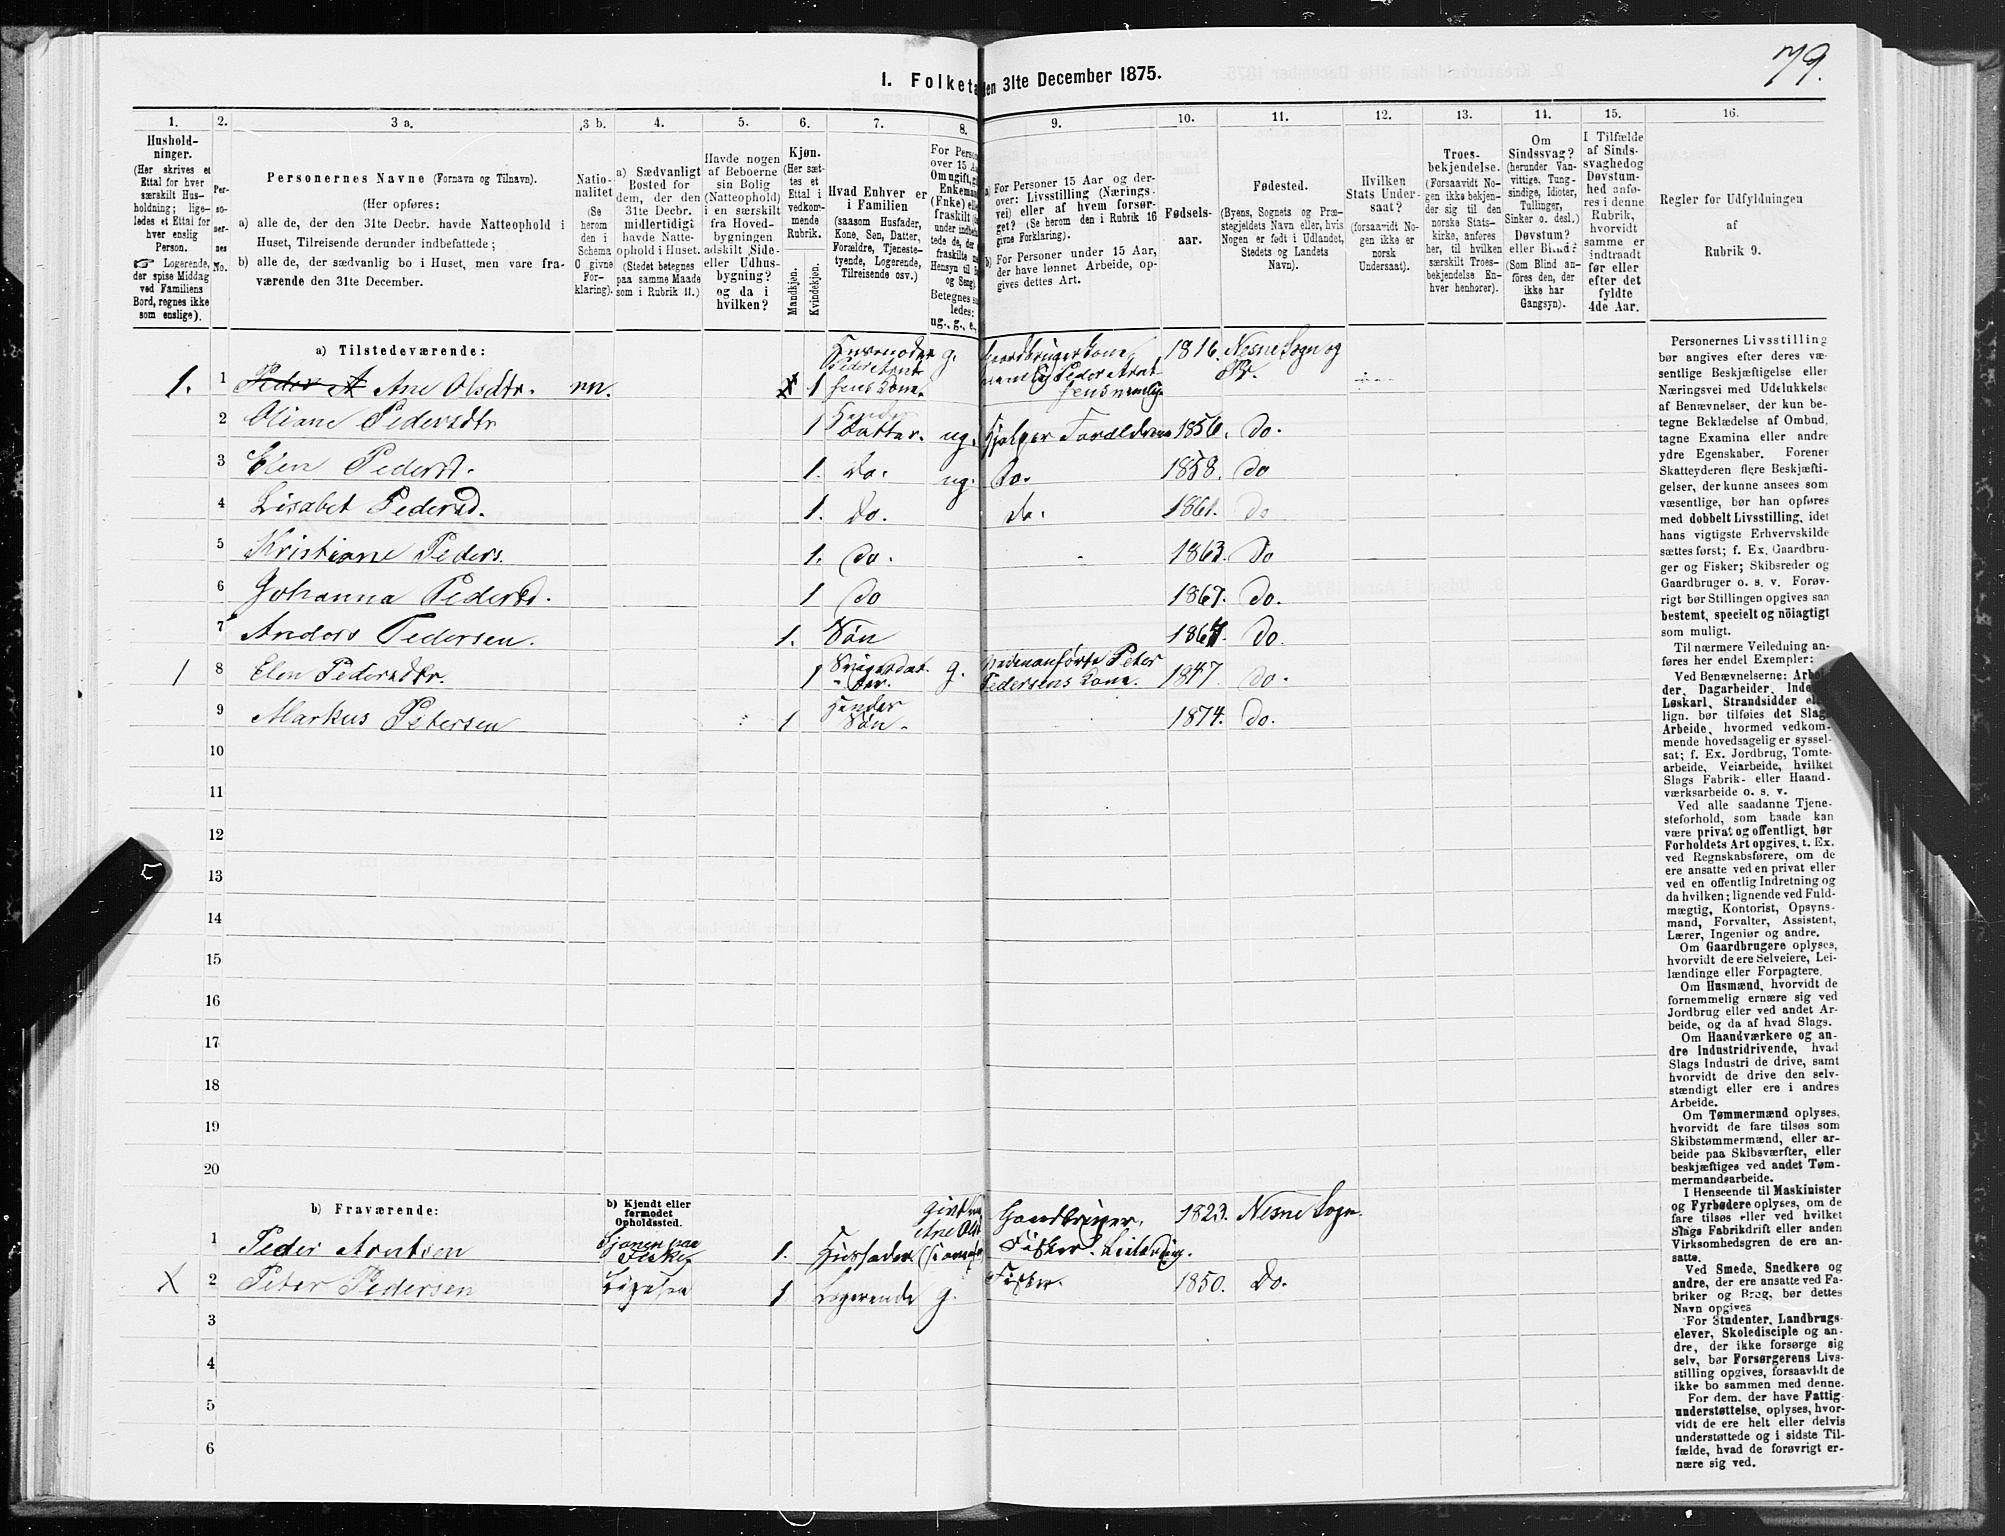 79.
1. Folketa den 31te December 1875.
1. 2. 3 a. 3 b. 4. 5. 6. 7. 8. 9. 10. 11. 12. 13. 14. 15. 16.
Hushold-
ninger.
(Her skrives et
Ettal for hver
særskilt Hus-
holdning; lige-
ledes et Ettal for
hver enslig
Person.
☞ Logerende,
der spise Middag
ved Familiens
Bord, regnes ikke
som enslige).
Per-
so-
ner-
nes
No.
Personernes Navne (Fornavn og Tilnavn).
(Her opføres:
a) alle de, der den 31te Decbr. havde Natteophold i
Huset, Tilreisende derunder indbefattede;
b) alle de, der sædvanlig bo i Huset, men vare fra-
værende den 31te December.
Natio-
nalitet
(Se
herom
den i
Schema
O givne
For-
klaring).
a) Sædvanligt
Bosted for
dem, der den
31te Decbr.
midlertidigt
havde Natte-
ophold i Huset.
(Stedet betegnes
paa samme Maade
som i Rubrik 11.)
Havde nogen
af Beboerne
sin Bolig
(Natteophold)
i en særskilt
fra Hoved-
bygningen
adskilt Side-
eller Udhus-
bygning?
og da i
hvilken?
Kjøn.
(Her sæt-
tes et
Ettal i
vedkom-
mende
Rubrik.
Mandkjøn.
Kvindekjøn.
Hvad Enhver er
i Familien
(saasom Husfader,
Kone, Søn, Datter,
Forældre, Tjeneste-
tyende, Logerende,
Tilreisende osv.)
For Person
over 15 Aa
Om ugift, gi
Enkeman
(Enke) elle
fraskilt
under indbefat
tede de, der
fraskilte
Hensyn til B
og Seng).
Betegnes s
ledes:
ug., g., e.,
a) For Personer 15 Aar og der-
over: Livsstilling (Nærings-
vei) eller af hvem forsør-
get? (Se herom den i Rubrik 16
givne Forklaring).
b) For Personer under 15 Aar,
der have lønnet Arbeide, op-
gives dettes Art.
Fødsels-
aar.
Fødested.
(Byens, Sognets og Præ-
stegjeldets Navn eller, hvis
Nogen er født i Udlandet,
Stedets og Landets
Navn).
Hvilken
Stats Under-
saat?
(forsaavidt No-
gen ikke er
norsk
Undersaat).
Troes-
bekjendelse.
(Forsaavidt No-
gen ikke bekjen-
der sig til den
norske Stats-
kirke, anføres
her, til hvilken
særskilt Troes-
bekjendelse En-
hver henhører).
Om
Sindssvag?
(herunder Van-
vittige, Tung-
sindige, Idioter,
Tullinger,
Sinker o. desl.)
Døvstum?
eller Blind?
(Som Blind an-
føres den, der
ikke har
Gangsyn).
I Tilfælde
af Sinds-
svaghed og
Døvstum-
hed anfø-
res i denne
Rubrik,
hvorvidt
samme er
indtraadt
før eller
efter det
fyldte
4de Aar.
Regler for Udfyldningen
af
Rubrik 9.
a) Tilstedeværende:
1. 1 Peder A Ane Olsdtr. nn. 1 Husmoder Peder Arnt sens Kone. g. Gaardbruger Kone, nemlig Peder Arnt sens nemlig. 1816. Nesne Sogn og Pr.
2 Oliane Pedersdtr 1 Hendes Datter. ug. Hjelper Forældrene 1856. do.
3 Elen Pedersd. 1. do. ug. do. 1858. do
4 Lisabet Pedersd. 1. do. do. 1861. do
5 Kristiane Peders. 1. do. 1863. do
6 Johanna Pedersd. 1 do 1867. do.
7 Anders Pedersen. 1. Søn 1867. do.
1 8 Elen Pedersdtr. 1 Svigerdat- ter. g. Nedenanførte Peter Pedersens Kone. 1847. do.
9 Markus Petersen 1 Hendes Søn. 1874. do.
10
11
12
13
14
15
16
17
18
19
20
b) Fraværende:
b) Kjendt eller
formodet
Opholdssted.
1 Peder Arntsen paa Fiske 1. Husfader Gift Ane Ols Gaardbruger, Fisker. Leilænding. 1823. Nesne Sogn.
X 2 Peter Pedersen Ligesaa 1 Logerende g. Fisker. 1850. Do.
3
4
5
6
Personernes Livsstilling
bør angives efter deres væ-
sentlige Beskjæftigelse eller
Næringsvei med Udelukkelse
af Benævnelser, der kun be-
tegne Beklædelse af Ombud,
tagne Examina eller andre
ydre Egenskaber. Forener
Skatteyderen flere Beskjæfti-
gelser, der kunne ansees som
væsentlige, bør han opføres
med dobbelt Livsstilling, idet
hans vigtigste Erhvervskilde
sættes først; f. Ex. Gaardbru-
ger og Fisker; Skibsreder og
Gaardbruger o. s. v. Forøv-
rigt bør Stillingen opgives saa
bestemt, specielt og nøiagtigt
som muligt.
Til nærmere Veiledning an-
føres her endel Exempler:
Ved Benævnelserne: Arbei
der, Dagarbeider, Inde
Løskarl, Strandsidder el
lign. bør tilføies det Slags
Arbeide, hvormed vedkom-
mende hovedsagelig er syssel-
sat; f. Ex. Jordbrug, Tomte-
arbeide, Veiarbeide, hvilket
Slags Fabrik- eller Haand-
værksarbeide o. s. v.
Ved alle saadanne Tjene-
steforhold, som baade kan
være privat og offentligt, bør
Forholdets Art opgives, f. Ex.
ved Regnskabsførere, om de
ere ansatte ved en privat eller
ved en offentlig Indretning og
da hvilken; lignende ved Fuld-
mægtig, Kontorist, Opsyns-
mand, Forvalter, Assistent,
Lærer, Ingeniør og andre.
Om Gaardbrugere oplyses,
hvorvidt de ere Selveiere, Lei-
lændinge eller Forpagtere.
Om Husmænd, hvorvidt de
fornemmelig ernære sig ved
Jordbrug eller ved andet Ar-
beide, og da af hvad Slags.
Om Haandværkere og an-
dre Industridrivende, hvad
Slags Industri de drive, samt
hvorvidt de drive den selv-
stændigt eller ere i andres
Arbeide.
Om Tømmermænd oplyses,
hvorvidt de fare tilsøs som
Skibstømmermænd, eller ar-
beide paa Skibsværfter, eller
beskjæftiges ved andet Tøm-
mermandsarbeide.
I Henseende til Maskinister
og Fyrbødere oplyses, om de
fare tilsøs eller ved hvilket
Slags Fabrikdrift eller anden
Virksomhedsgren de ere an-
satte.
Ved Smede, Snedkere og
andre, der ere ansatte ved Fa-
briker og Brug, bør dettes
Navn opgives
For Studenter, Landbrugs-
elever, Skoledisciple og an-
dre, der ikke forsørge sig
selv, bør Forsørgerens Livs-
stilling opgives, forsaavidt de
ikke bo sammen med denne.
For dem, der have Fattig
understøttelse, oplyses, hvor-
vidt de ere helt eller delvis
understøttede og i sidste Til-
fælde, hvad de forøvrigt er-
nære sig ved.